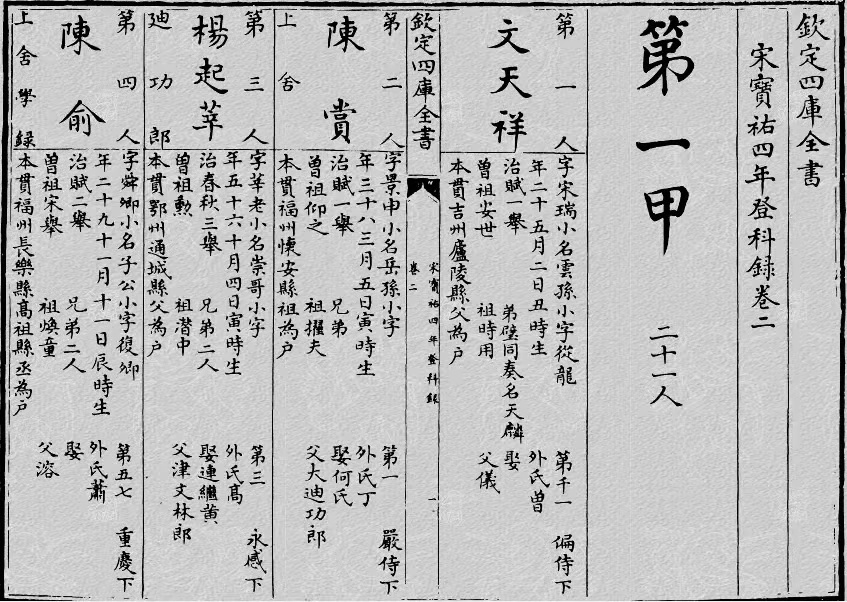 欽定四庫全書
宋寳祐四年登科録卷二
第一甲 二十一人
第一人 文天祥
字宋瑞小名雲孫小字從龍 第千一 偏侍下
年二十五月二日丑時生 外氏曾
治賦一舉 弟璧同奏名天麟 娶
曾祖安世 祖時用 父儀
本貫吉州廬陵縣父為戶
欽定四庫全書 宋寳祐四年登科録 卷二 一
第二人 陳賞 上舍
字景申小名岳孫小字 第一 嚴侍下
年三十八三月五日寅時生 外氏丁
治賦一舉 兄弟 娶何氏
曾祖仰之 祖擢夫 父大迪功郎
本貫福州懐安縣祖為戶
第三人 楊起莘 廸功郎
字莘老小名崇哥小字 第三 永感下
年五十六十月四日寅時生 外氏髙
治春秋三舉 兄弟二人 娶連繼黄
曾祖勲 祖潜中 父津文林郎
本貫鄂州通城縣父為戶
第四人 陳俞 上舍學録
字舜卿小名子公小字復卿 第五七 重慶下
年二十九十一月十一日辰時生 外氏蕭
治賦二舉 兄弟二人 娶
曾祖宋舉 祖煥童 父溶
本貫福州長樂縣髙祖縣丞為戶